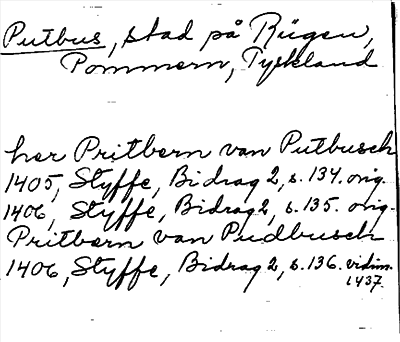 Putbus, stad på Rügen,
Pommern, Tyskland
her Pritbern van Putbusch
1405, Styffe, Bidrag 2, s. 134. orig.
1406, Styffe, Bidrag 2, s. 135. orig.
Pritbern van Pudbusch
1406, Styffe, Bidrag 2, s. 136. vidim.
1437.